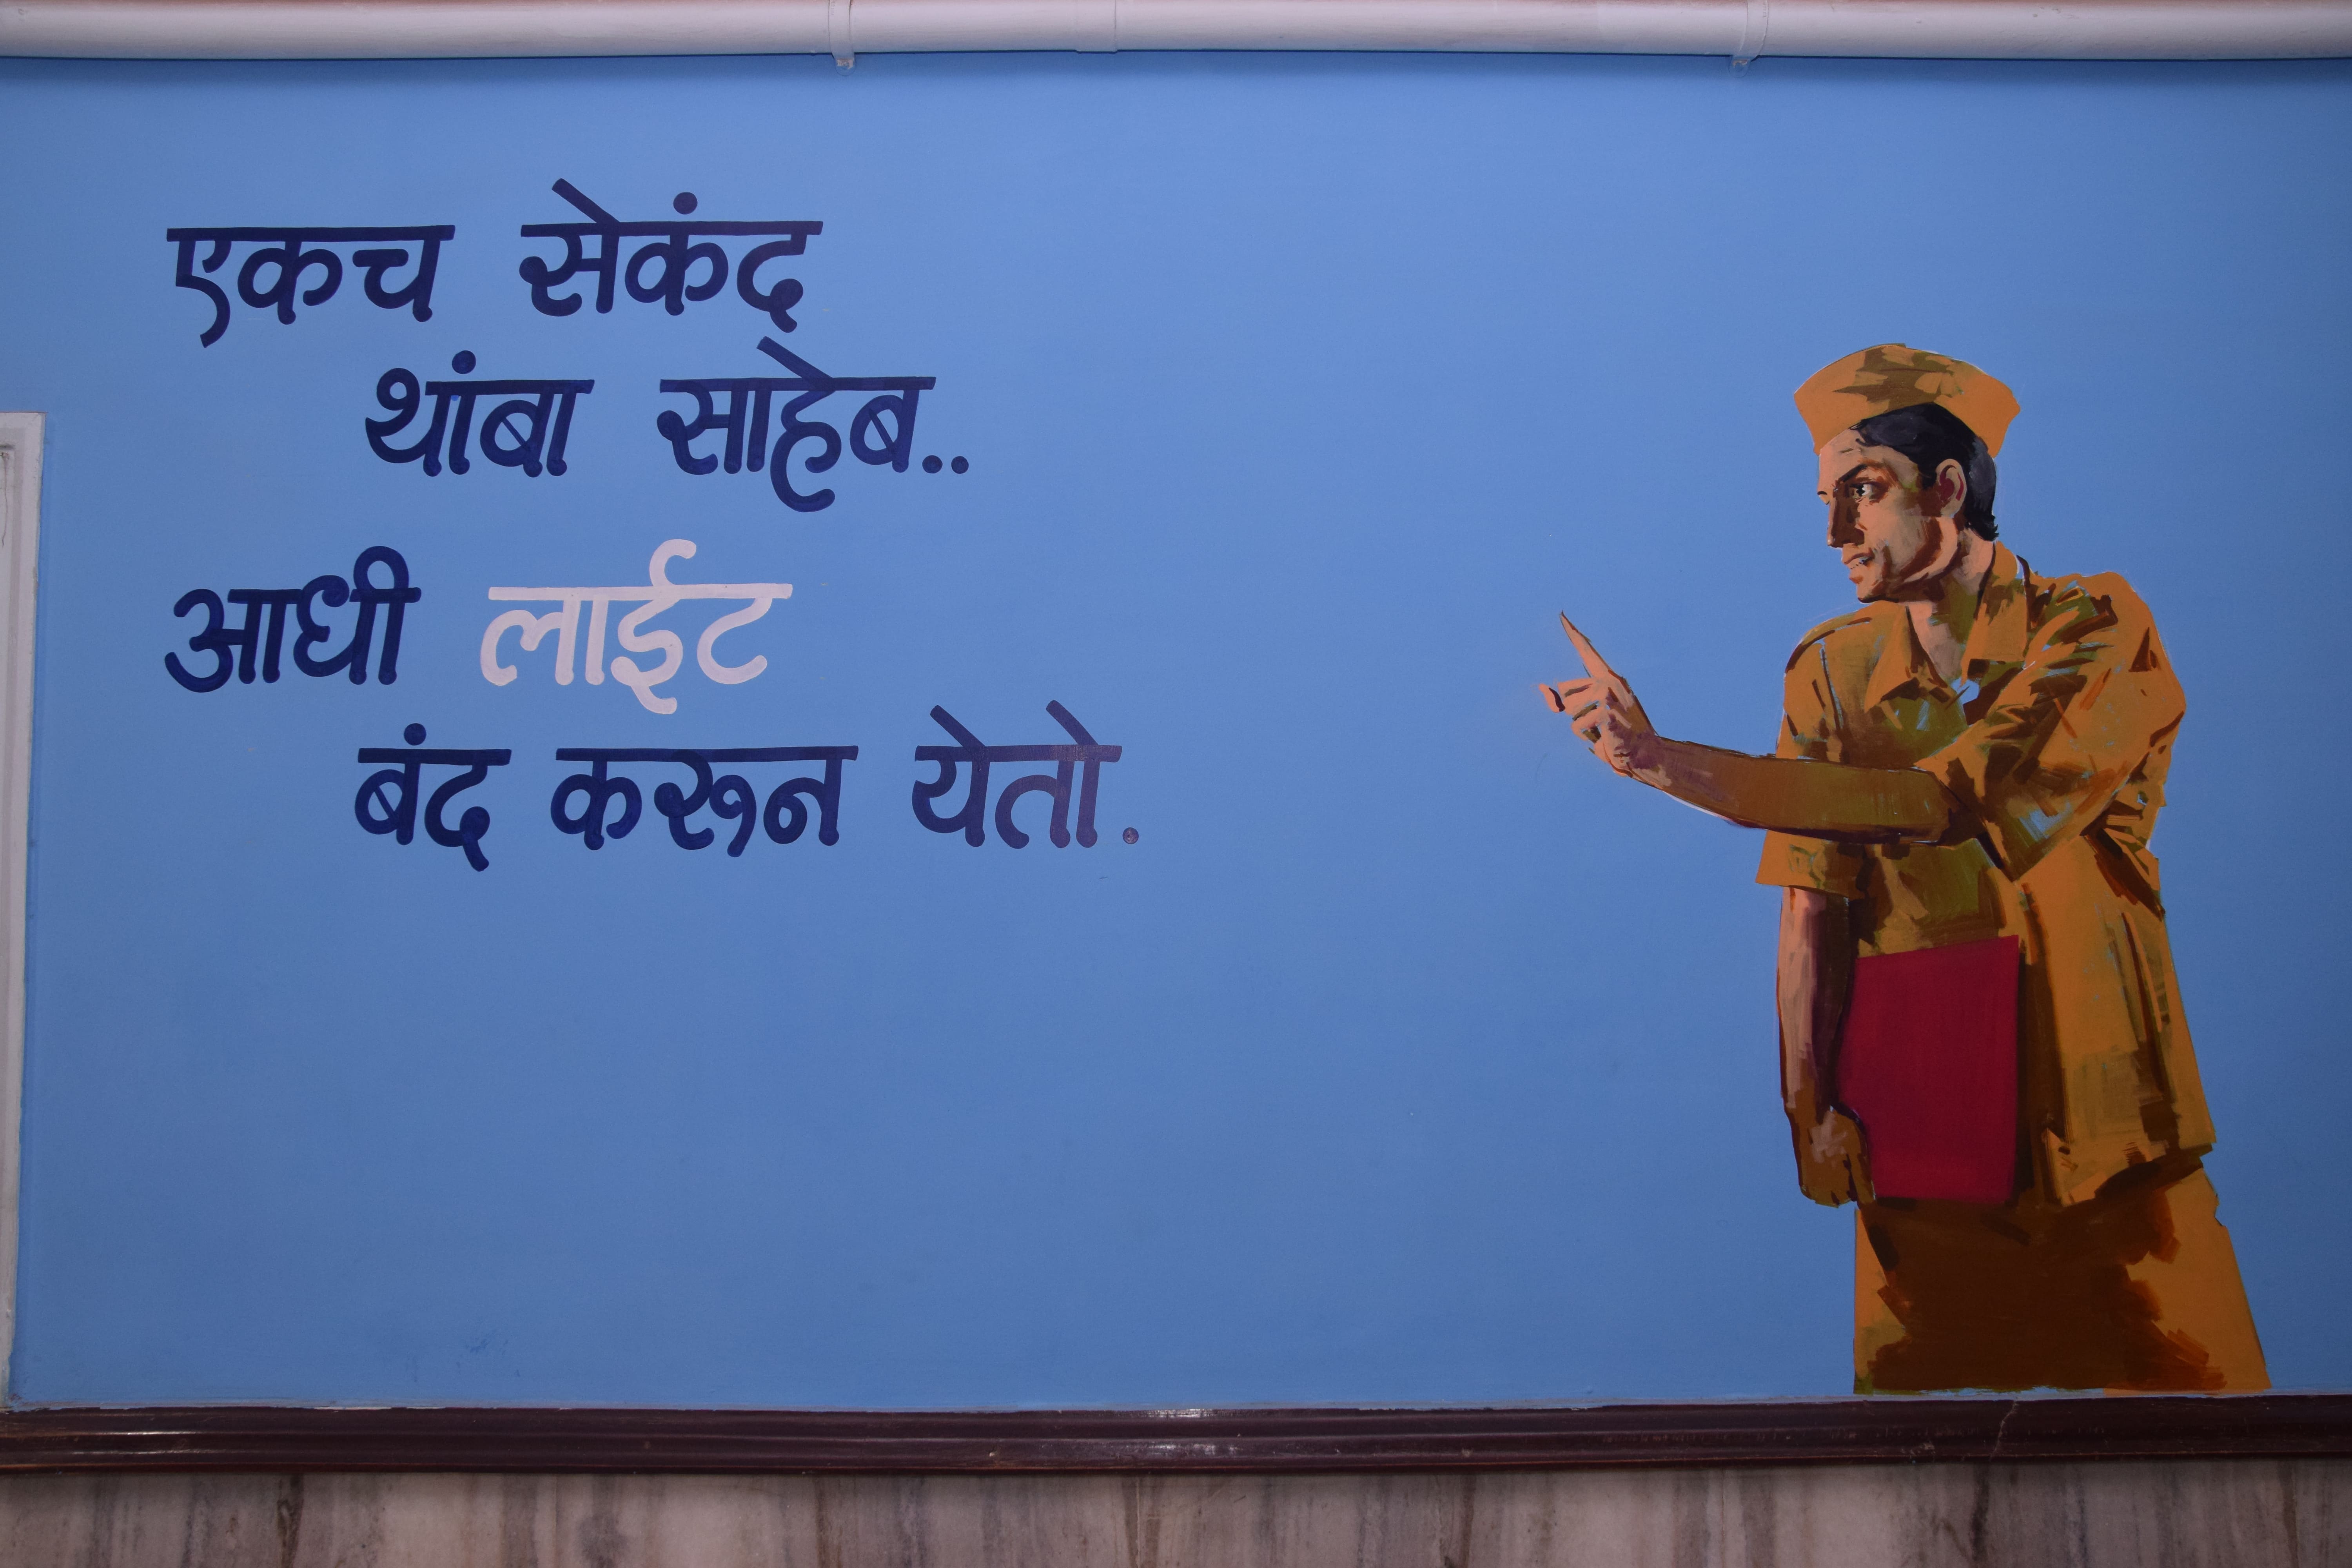 एकच सेकंद
थांबा साहेब..
आधी लाईट
बंद करून येतो.